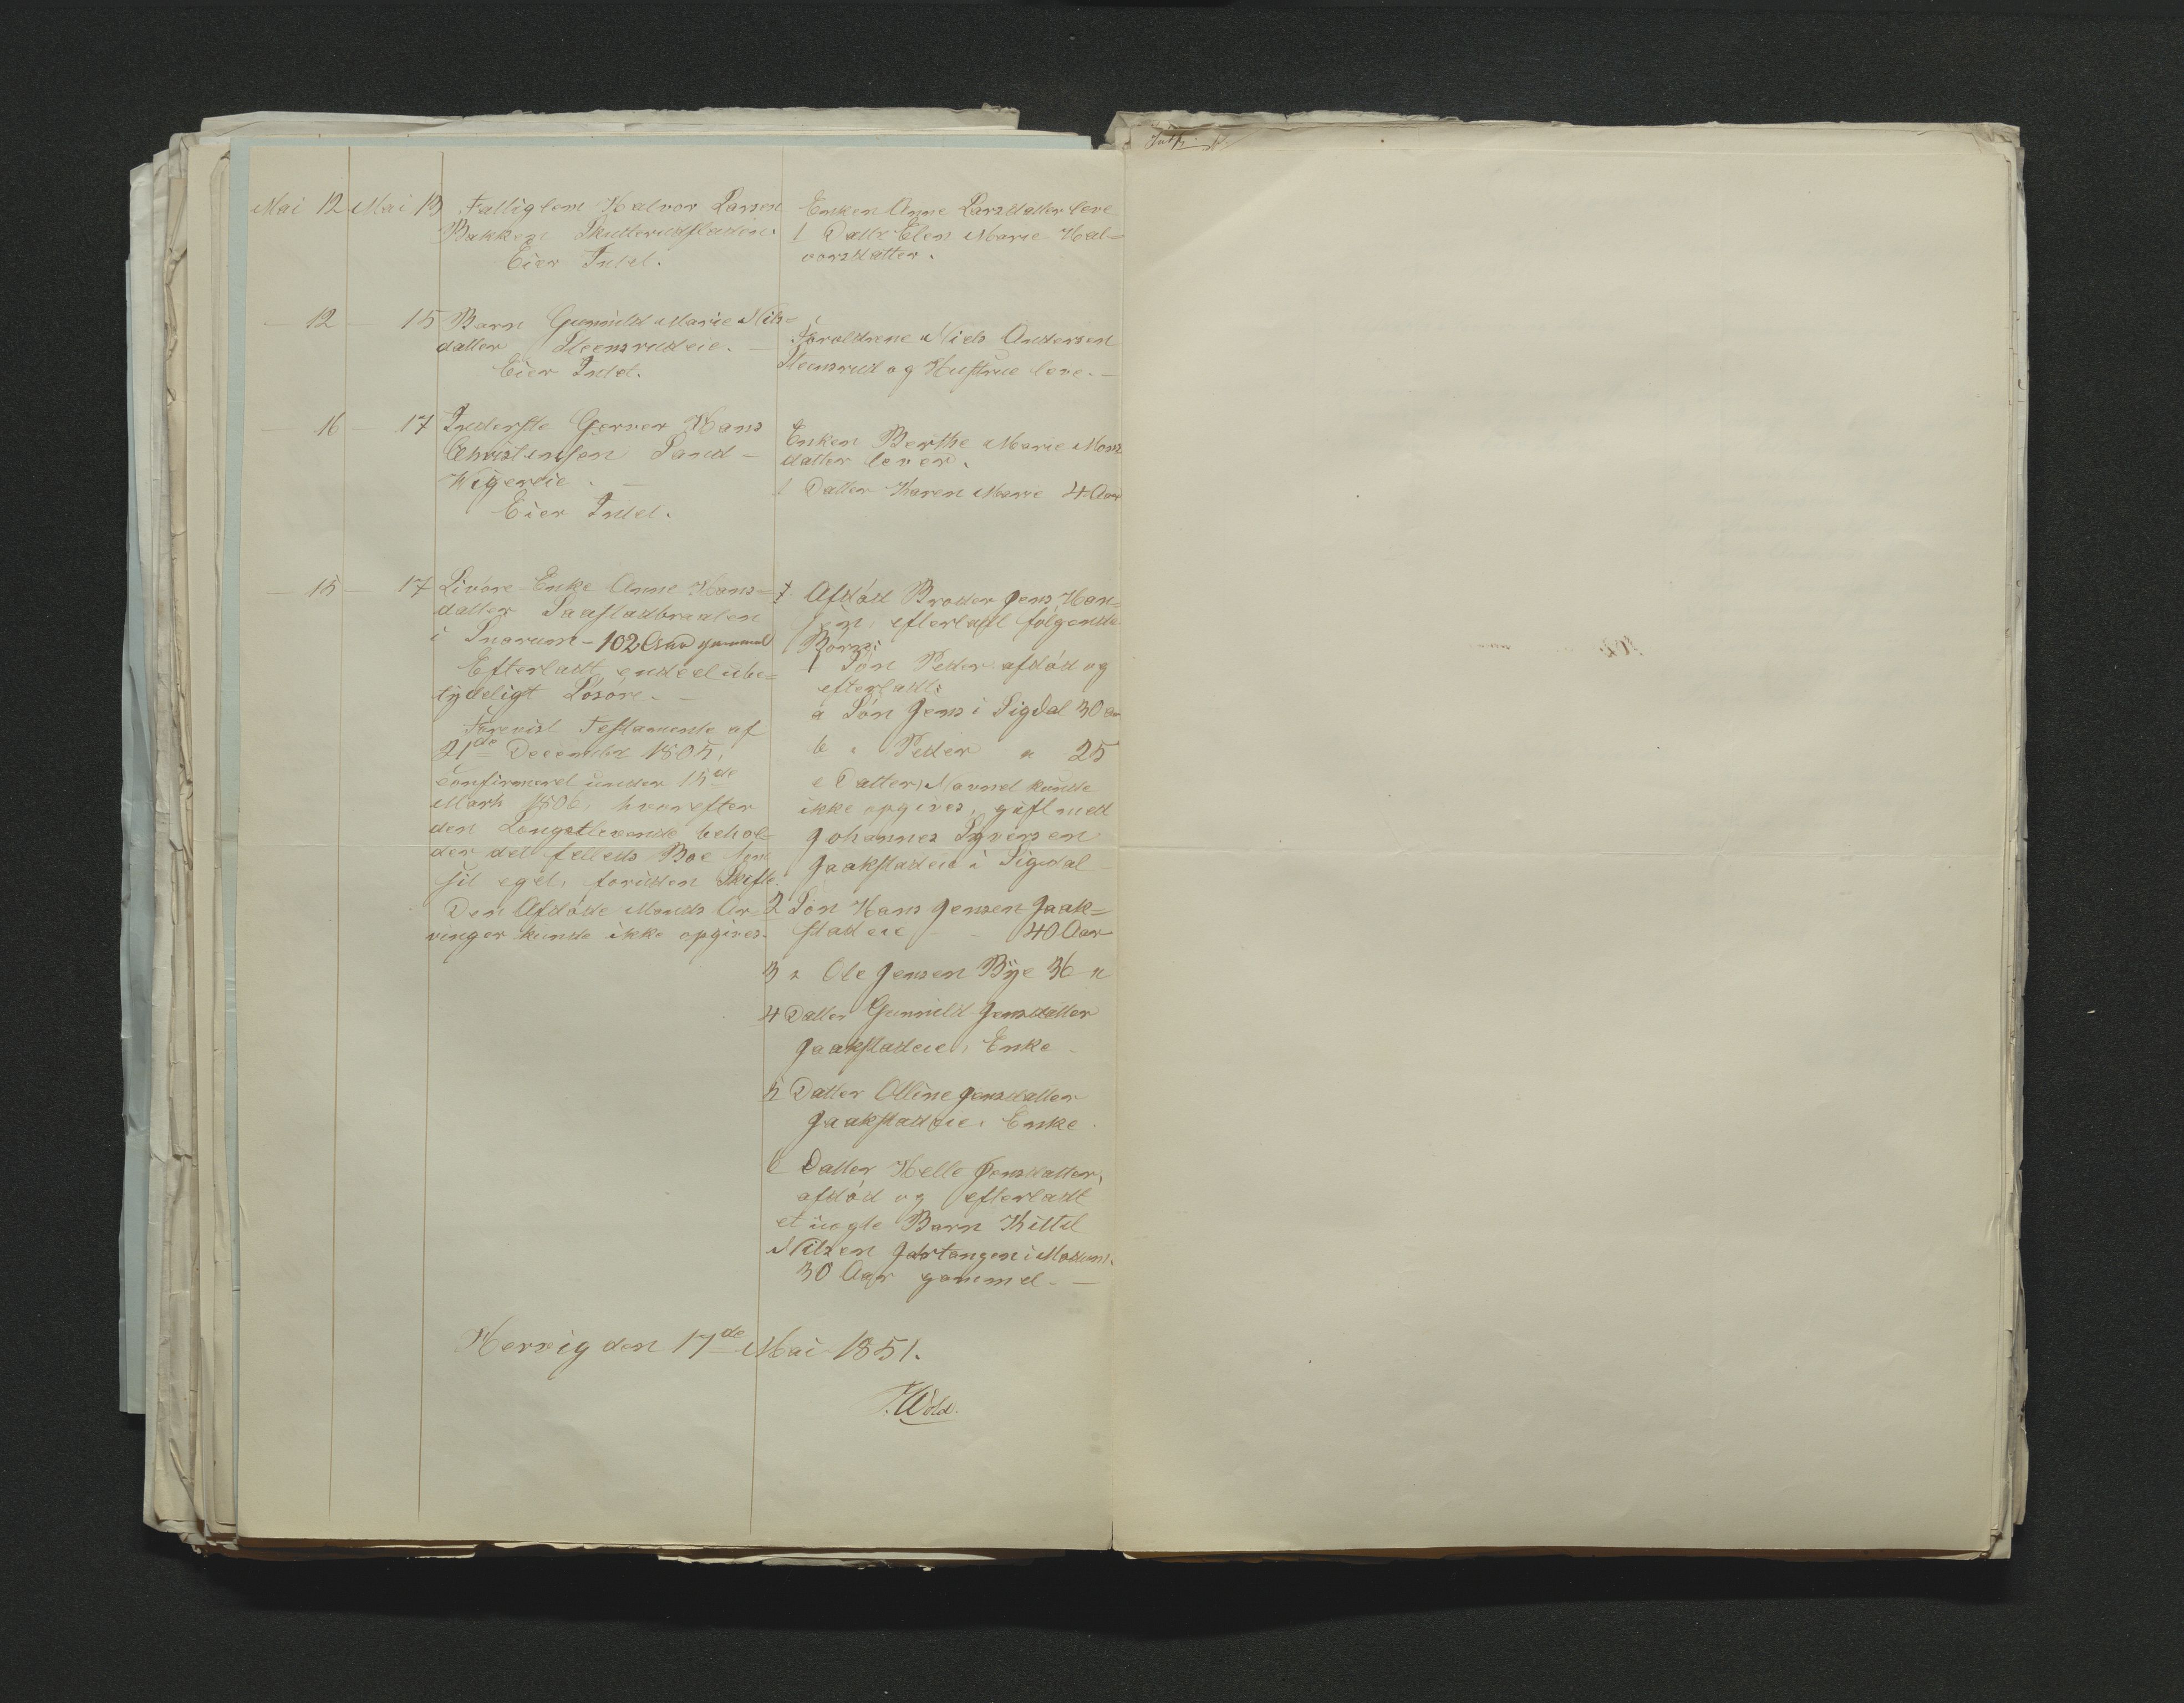 Mai 12 Mai 13 Fattiglem Halvor Larsen
Bakken Skutterudfladen.
Eier Intet.
Enken Anne Larsdatter leve
1 Datter Elen Marie Hal-
vorsdatter.
— 12 — 15 Barn Gunnild Marie Nils=
datter Steensrudeie. —
Eier Intet.
Foreldrene Niels Andersen
Steensrud og Hustrue leve. —
— 16 — 17 Inderste Gerver Hans
Christensen Sand -
Wigereie. —
Eier Intet.
Enken Berthe Marie Mons
datter lever.
1 Datter Karen Marie 4 Aar
— 15 — 17 Livøre Enke Anne Hans=
datter Saastadbraaten
i Snarum - 102 Aar gammel
Efterladt endeel ube=
tydeligt Løsøre. —
Forevist Testamente af
21de December 1805,
confirmeret under 15de
Marts 1806, hvorefter
den Længstlevende behol=
der det felleds Boe som
sit eget, foruden Skifte.
Den Afdøde Mands Ar=
vinger kunde ikke opgives.
† Afdød Broder Jens Han=
sen, efterladt følgende
Børn:
1 Søn Peder afdød og
efterladt:
a Søn Jens i Sigdal 30 Aar
b " Peder " 25
c Datter, Navnet kunde
ikke opgives, gift med
Johannes Syversen
Jaakstadeie i Sigdal —
2 Søn Hans Jensen Jaak=
stadeie — 40 Aar
3 " Ole Jensen Bye 36 "
4 Datter Gunnild Jensdatter
Jaakstadeie, Enke —
5 Datter Olline Jensdatter
Jaakstadeie. Enke.
6 Datter Helle Jensdatter,
afdød og efterladt
et uægte Barn Kittil
Nilsen i Modum,
30 Aar gammel. —
Hervig den 17de Mai 1851.
T. Wold.